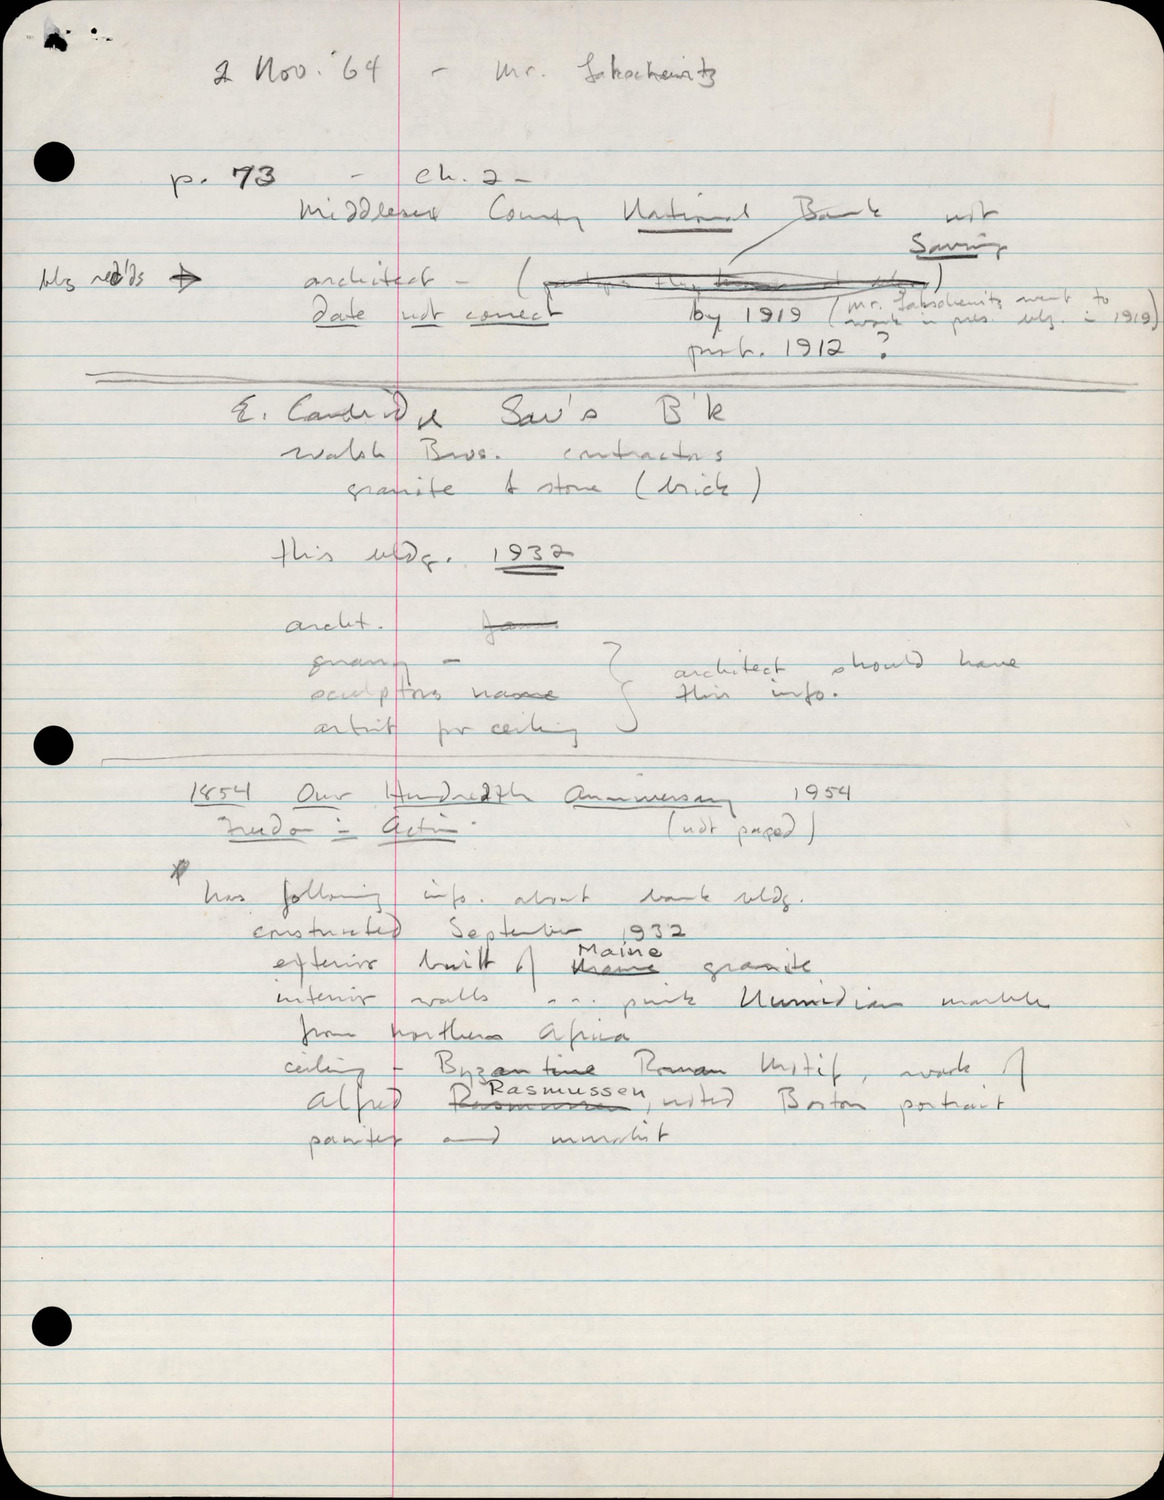 2 Nov. '64 - Mr.
p. 73 - ch. 2 -
Middlesex County National Bank not
Saving
architect - (
bldg rec'ds → date not correct by 1919 (Mr. went to
work in pres. bldg. in 1919)
prob. 1912 ?
E. Cambridge Sav's B'k
Walsh Bros. contractors
granite & stone (brick)
this bldg. 1932
archt.
quarry -
sculptors name
artist for ceiling
} architect should have
this info.
1854 Our Hundredth Anniversary 1954
Freedom in Action (not paged)
* has following info. about bank bldg.
constructed September 1932
Maine
exterior built of Maine granite
interior walls ... pink Numidian marble
from northern Africa
ceiling - Byzantine Roman Motif, work of
Rasmussen
Alfred Rasmussen, noted Boston portrait
painter and muralist